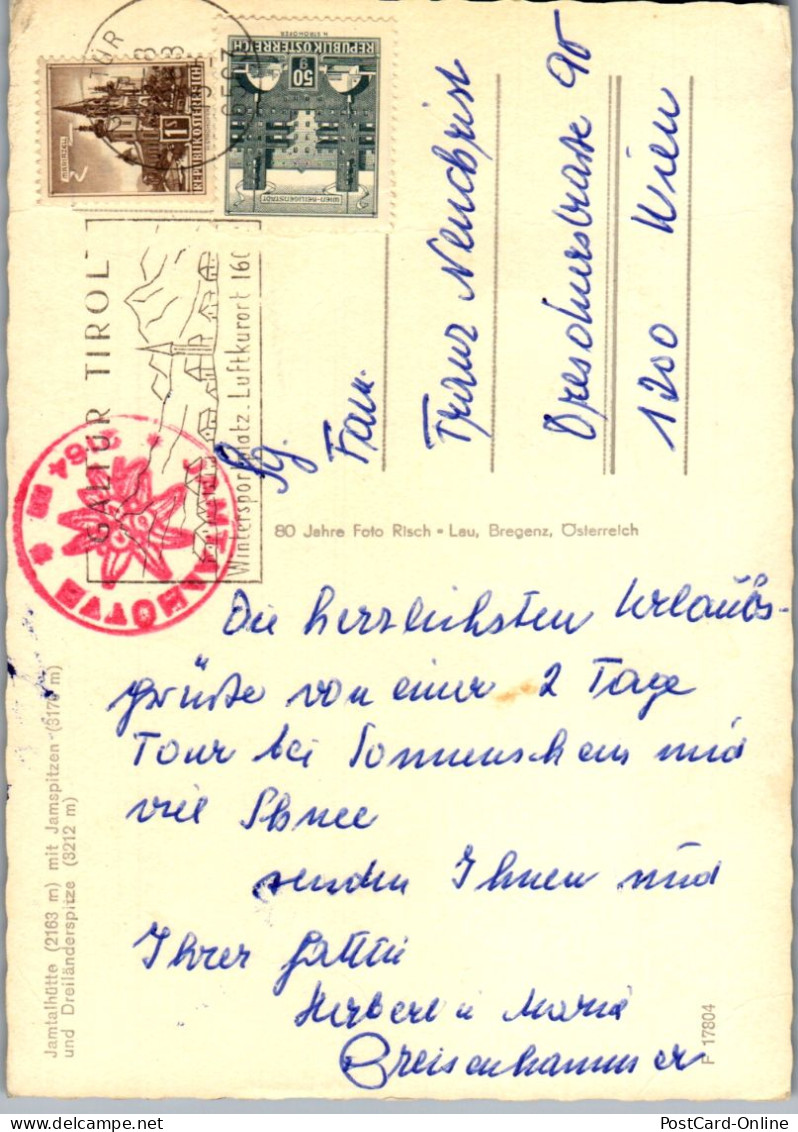 REPUBLIK ÖSTERREICH
1S
MARIAZELL
REPUBLIK ÖSTERREICH
50 g
WIEN-HEILIGENSTADT
GALTÜR TIROL
Wintersportplatz. Luftkurort 160
JAMTALHÜTTE
2164 m
Sg.
Frau
Franz Neuchrist
Dresdnerstrasse 90
1200 Wien
80 Jahre Foto Risch - Lau, Bregenz, Österreich
Die herzlichsten Urlaubs-
grüße von einer 2 Tage
Tour bei Sonnenschein und
viel Schnee
senden Ihnen und
Ihrer Gattin
Herbert u Maria
Breisenhammer
Jamtalhütte (2163 m) mit Jamspitzen (3178 m)
und Dreiländerspitze (3212 m)
F 17804
PostCard-Online